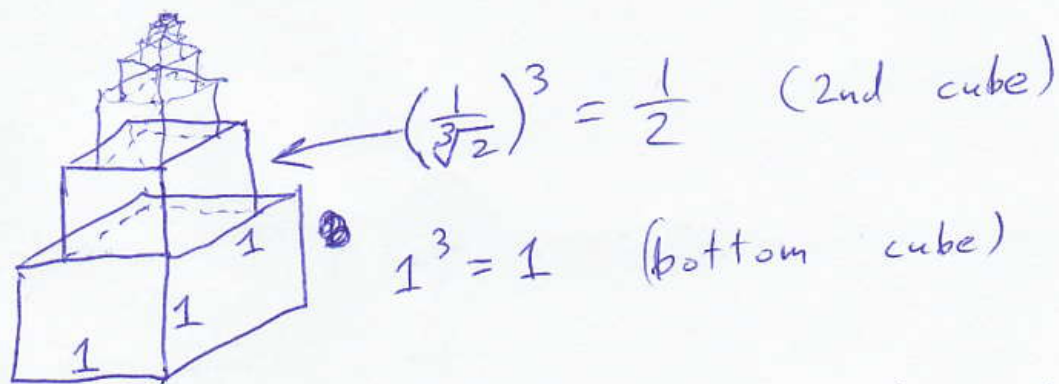 (1/∛2)³ = 1/2 (2nd cube)
1
1³ = 1 (bottom cube)
1
1